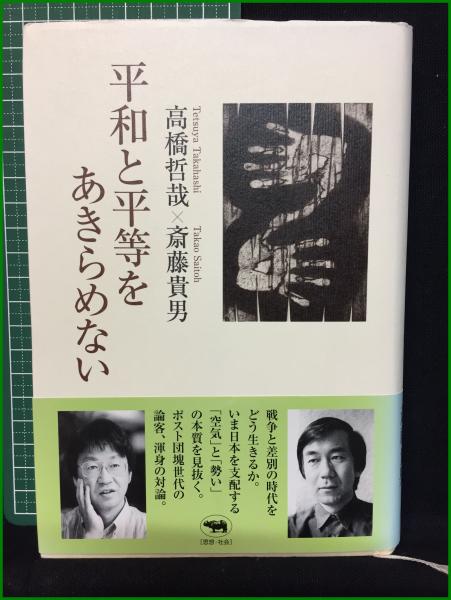 平和と平等を
あきらめない
Tetsuya Takahashi
高橋哲哉×斎藤貴男
Takao Saitoh
戦争と差別の時代を
どう生きるか。
いま日本を支配する
「空気」と「勢い」
の本質を見抜く。
ポスト団塊世代の
論客、渾身の対論。
[思想・社会]